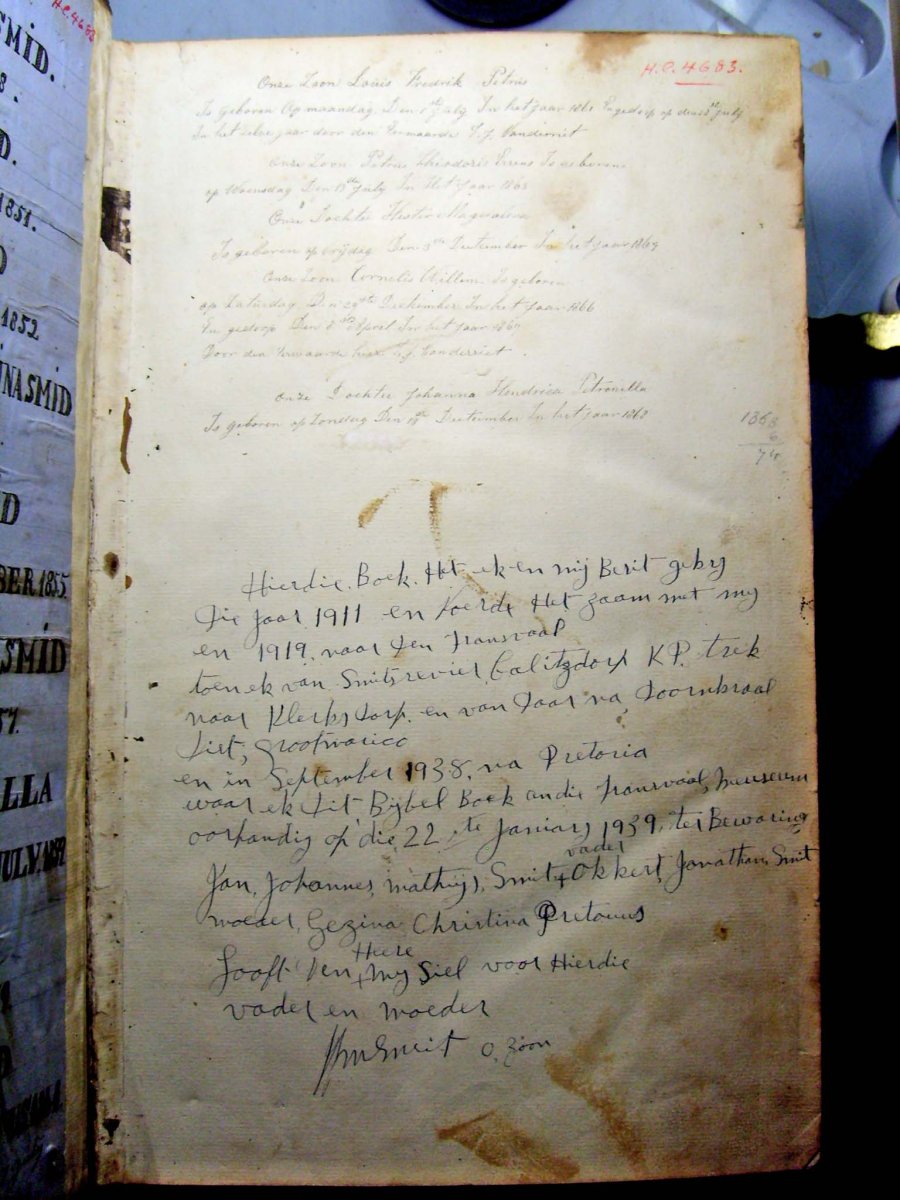 H.C. 4683.
Onze Zoon Louis Fredrik Petrus
Is geboren Op maandag Den 1ste July In het Jaar 1861 En gedoop op den July
In het zelve jaar door den Eerwaarde T.J. Vanderriet
Onze Zoon Petrus Is geboren
op Woensdag Den 15de July In Het Jaar 1863
Onze Dochter Hester Magdalena
Is geboren op vrijdag Den Dectember In het jaar 1864
Onze Zoon Cornelis Willem Is geboren
op Saturdag Den 29ste Dectember In het Jaar 1866
En gedoop Den April In het Jaar 1867
Door den Eerwaarde heer T.J. Vanderriet.
Onze Dochter Johanna Hendrica Petronella
Is geboren op Zondag Den Dectember In het jaar 1868
1868
6
74
Hierdie. Boek. Het ek en mij Besit gekry
Die Jaar 1911 en Voerde Het zaam met my
en 1919. naar Den Transvaal
toen ek van Smitsrevier, Calitzdorp K.P. trek
naar Klerksdorp. en van Daar na, Doornkraal
Dist, Grootmarico
en in September 1938, na Pretoria
waar ek Dit Bijbel Boek an die Transvaal, Meuseum
oorhandig op die, 22 ste Januarij 1939, ter Bewaring
Jan, Johannes, Mathijs, Smit + vader Okkert, Jonathan, Smit
moeder, Gezina Christina Pretorius
Looft Den Heere + my Siel voor Hierdie
vader en moeder
JJMSmit O. Zoon
SMID.
1851.
1852
INASMID
BER 1855.
SMID
LLA
JULY. 1859
H.C. 4683